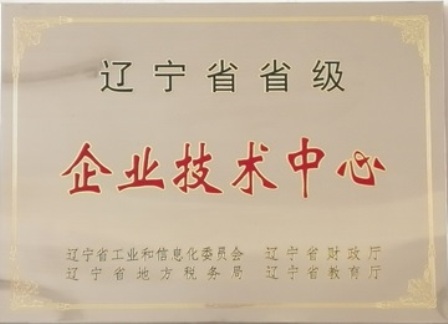 辽宁省省级
企业技术中心
辽宁省工业和信息化委员会 辽宁省财政厅
辽宁省地方税务局 辽宁省教育厅